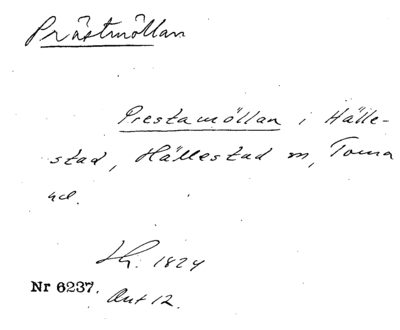 Prästmöllan
Prestamöllan i Hälle-
stad, Hällestad sn, Torna
hd.
Lh. 1824
Nr 6237.
Ant 12.